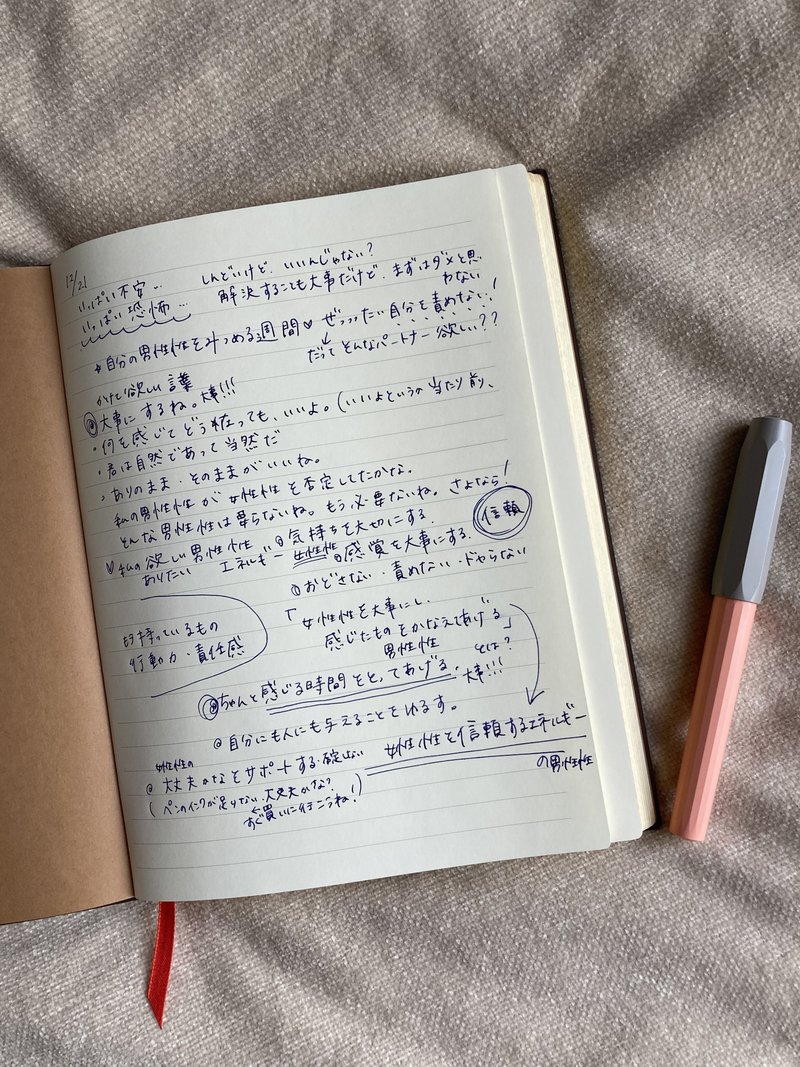 12/21
いっぱい不安…
いっぱい恐怖…
しんどいけど、いいんじゃない?
解決することも大事だけど、まずはダメと思
わない
自分の男性性をみつめる週間♡ ぜっっったい自分を責めない!
だってそんなパートナー欲しい??
かけて欲しい言葉
大事にするね。大事!!!
・何を感じてどう在っても、いいよ。(いいよというの当たり前、
・君は自然であって当然だ
・ありのまま・そのままがいいね。
私の男性性が女性性を否定してたかな。
そんな男性性は要らないね。もう必要ないね。さよなら!
♡私の欲しい男性性
ありたい
エネルギー
気持ちを大切にする
女性性
感覚を大事にする
信頼
おどさない・責めない・ドヤらない
持っているもの
行動力・責任感
「女性性を大事にし、
感じたものをかなえてあげる」
男性性
とは?
大事!!!
ちゃんと感じる時間をとってあげる。
自分にも人にも与えることをゆるす。
女性性を信頼するエネルギー
の男性性
女性性の
大丈夫かなをサポートする・否定しない
(ペンのインクが足りない、大丈夫かな?
←すぐ買いに行こうね!)